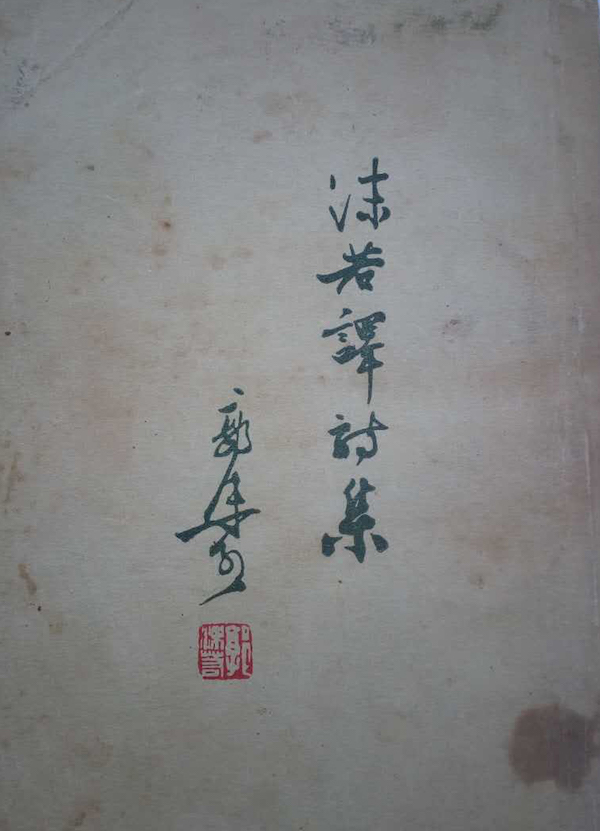 沫若譯詩集
郭沫若
郭沫若